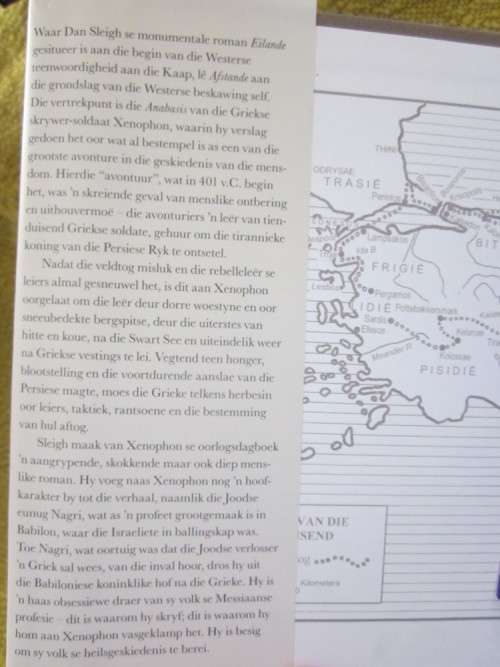 Waar Dan Sleigh se monumentale roman Eilande
gesitueer is aan die begin van die Westerse
teenwoordigheid aan die Kaap, lê Afstande aan
die grondslag van die Westerse beskawing self.
Die vertrekpunt is die Anabasis van die Griekse
skrywer-soldaat Xenophon, waarin hy verslag
gedoen het oor wat al bestempel is as een van die
grootste avonture in die geskiedenis van die mens-
dom. Hierdie “avontuur”, wat in 401 v.C. begin
het, was ’n skreiende geval van menslike ontbering
en uithouvermoë – die avonturiers ’n leër van tien-
duisend Griekse soldate, gehuur om die tirannieke
koning van die Persiese Ryk te ontsetel.
Nadat die veldtog misluk en die rebelleleër se
leiers almal gesneuwel het, is dit aan Xenophon
oorgelaat om die leër deur dorre woestyne en oor
sneeubedekte bergspitse, deur die uiterstes van
hitte en koue, na die Swart See en uiteindelik weer
na Griekse vestings te lei. Vegtend teen honger,
blootstelling en die voortdurende aanslae van die
Persiese magte, moes die Grieke telkens herbesin
oor leiers, taktiek, rantsoene en die bestemming
van hul aftog.
Sleigh maak van Xenophon se oorlogsdagboek
’n aangrypende, skokkende maar ook diep mens-
like roman. Hy voeg naas Xenophon nog ’n hoof-
karakter by tot die verhaal, naamlik die Joodse
eunug Nagri, wat as ’n profeet grootgemaak is in
Babilon, waar die Israeliete in ballingskap was.
Toe Nagri, wat oortuig was dat die Joodse verlosser
’n Griek sal wees, van die inval hoor, dros hy uit
die Babiloniese koninklike hof na die Grieke. Hy is
’n haas obsessiewe draer van sy volk se Messiaanse
profesie – dít is waarom hy skryf; dit is waarom hy
hom aan Xenophon vasgeklamp het. Hy is besig
om sy volk se heilsgeskiedenis te berei.
THINI
ODRYSAE
TRASIË
Lampsakos
Ida B
FRIGIË
BIT
Pergamos
IDIË
Sardis
Efesos
Kelainai
Meander R
Kolossae
PISIDIË
VAN DIE
ISEND
og
Kilometers